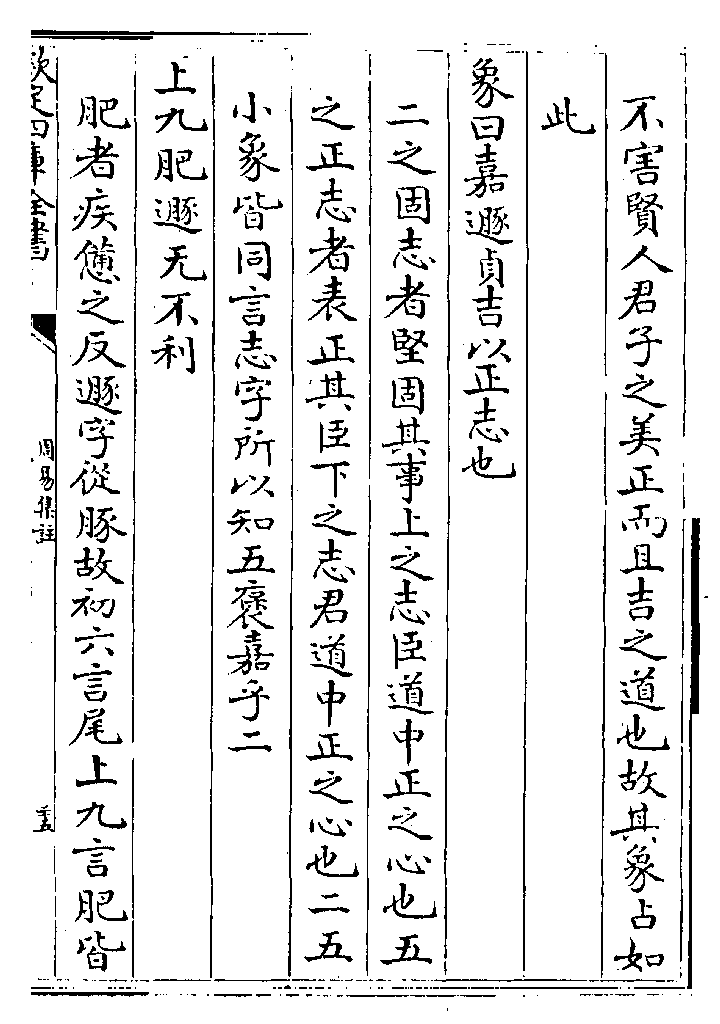 不害賢人君子之美正而且吉之道也故其象占如
此
象曰嘉遯貞吉以正志也
二之固志者堅固其事上之志臣道中正之心也五
之正志者表正其臣下之志君道中正之心也二五
小象皆同言志字所以知五褒嘉乎二
上九肥遯无不利
肥者疾憊之反遯字從豚故初六言尾上九言肥皆
欽定四庫全書
周易集註